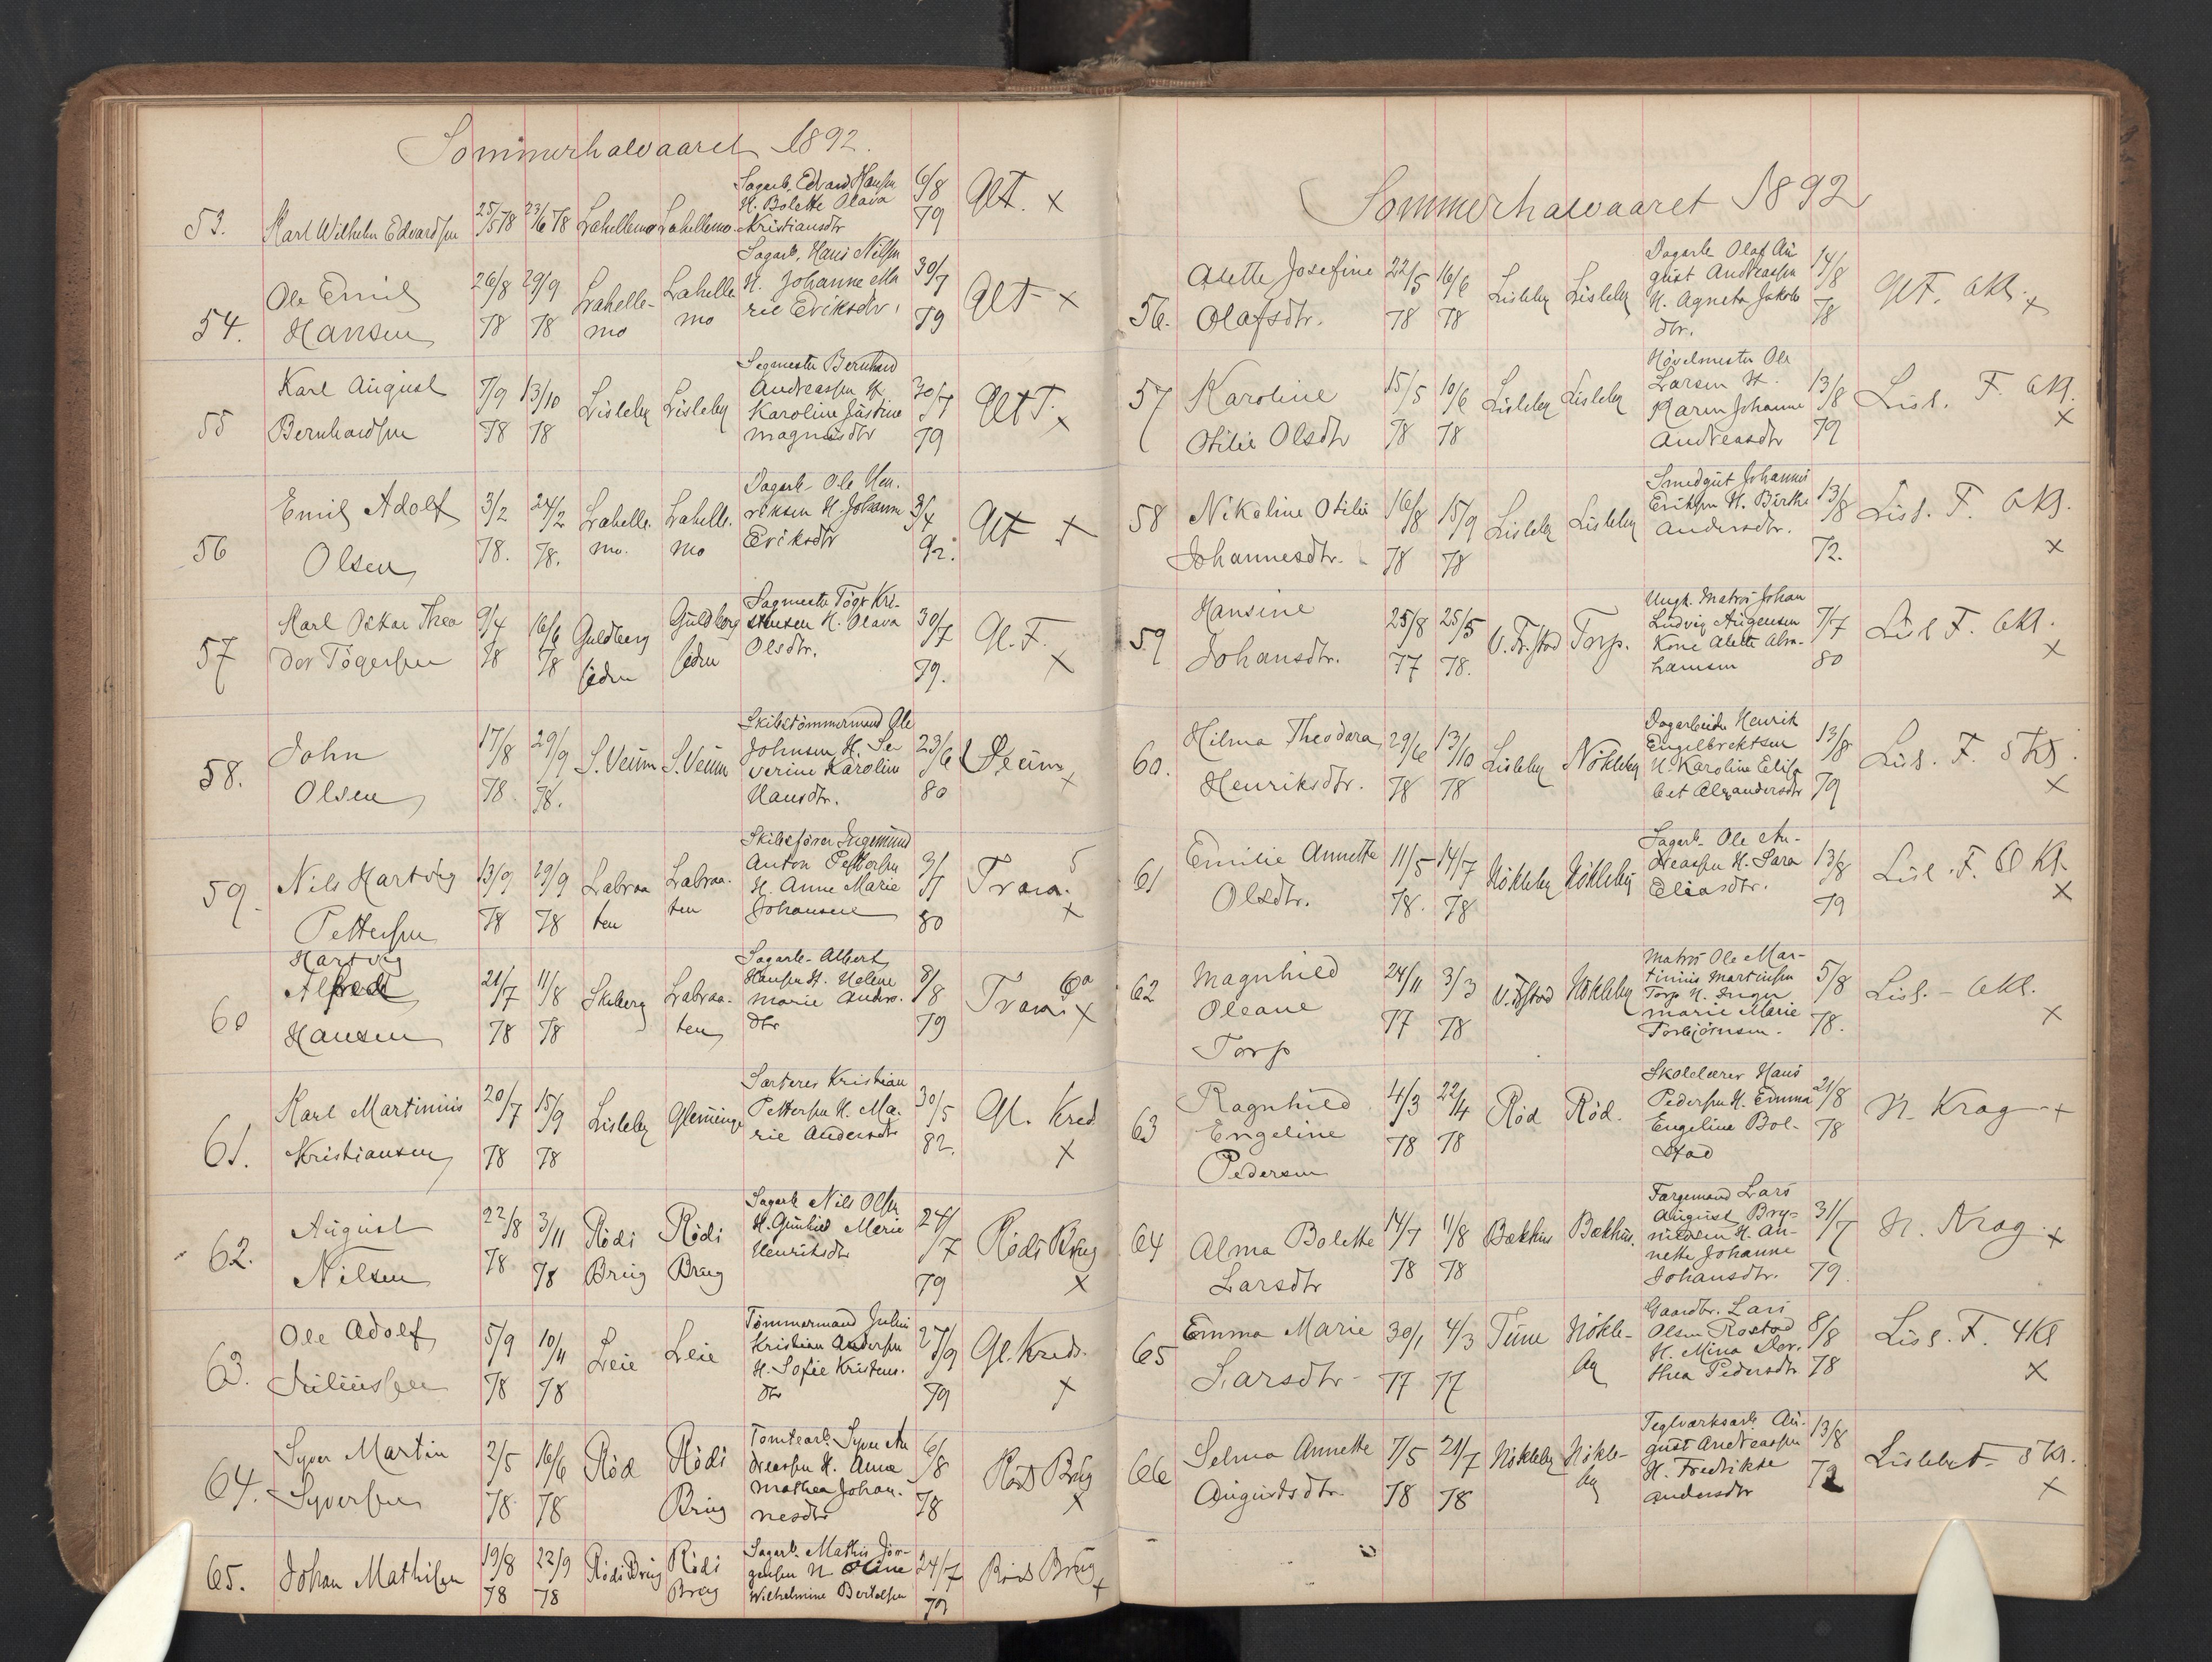 Sommerhalvaaret 1892.
53. Karl Wilhelm Edvardsen 25/5 78 23/6 78 Labellemo Labellemo Sagarb. Edvard Hansen H. Bolette Olava Kristiansdtr 6/8 79 Glt. x
54. Ole Emil Hansen 26/8 78 29/9 78 Labellemo Labellemo Sagarb. Hans Nilsen H. Johanne Marie Eriksdtr. 30/7 79 Glt x
55 Karl August Bernhardsen 7/9 78 13/10 78 Lisleby Lisleby Sagmester Bernhard Andreassen H. Karoline Justine Magnusdtr 30/7 79 Glt T. x
56 Emil Adolf Olsen 3/2 78. 24/2 78. Labellemo. Labellemo Dagarb. Ole Henriksen H. Johanne Eriksdtr 3/4 92. Glt x
57 Karl Oskar Theodor Tögersen 9/4 78 16/6 78 Guldberg Guldberg Sagmester Töger Kristensen H. Olava Olsdtr. 30/7 79. Gl. F. x
58. John Olsen 17/8 78. 29/9 78. S. Veum S. Veum Skibstömmermand Ole Johnsen H. Severine Karoline Hansdtr. 23/6 80 Veum x
59. Nils Hartvig Pettersen 13/9 78 29/9 78 Labraaten Labraaten Skibsförer Ingemund Anton Pettersen H. Anne Marie Johansen 80 Trara. 5 x
60 Hartvig Alfred Hansen 21/7 78 11/8 78 Skiberg Labraaten Sagarb. Albert Hansen H. Helene Marie Andersdtr 8/8 79 Trara 6a x
61. Karl Martinius Kristiansen 20/7 78 15/9 78 Lisleby Glemminge Sorterer Kristian Pettersen H. Marie Andersdtr 30/5 82. Gl. Kred x
62. August Nilsen 22/8 78 3/11 78 Rödi Brug Rödi Brug Sagarb Nils Olsen H. Gunhild Marie Henriksdtr 24/7 79 Röds Brug x
63. Ole Adolf Juliussen 5/9 78 10/11 78 Leie Leie Tömmermand Julius Kristian Andersen H. Sofie Kristensdtr 27/9 79 Gl. Kreds. x
64. Syver Martin Syversen 2/5 78. 16/6 78 Röd Rödi Brug Tomtearb. Syver Andreassen H. Anna Mathea Johannesdtr 6/8 78 Röds Brug x
65. Johan Mathisen 19/8 78 22/9 78 Rödi Brug Rödi Brug Sagarb. Mathis Jörgensen H. Oline Wilhelmine Bertelsen 24/7 79 Röds Brug x
Sommerhalvaaret 1892
56. Alette Josefine Olafsdtr. 22/5 78 16/6 78 Lisleby Lisleby Dagarb Olaf August Andreassen H. Agneta Jakobsdtr. 14/8 78 Glt. 6Kl. x
57 Karoline Otilie Olsdtr 15/5 78 10/6 78 Lisleby Lisleby Hövelmester Ole Larsen H. Karen Johanne Andreasdtr 13/8 79 Lisl. F. 6Kl. x
58 Nikoline Otilie Johannesdtr. 16/8 78 15/9 78 Lisleby Lisleby Smedgut Johannes Eriksen H. Birthe Andersdtr. 13/8 72. Lisl. F. 6Kl. x
59 Hansine Johansdtr. 25/8 77 25/5 78. V. Fr.stad Torp. Ungk. Matros Johan Ludvig Augensen Kone Alette Abrahamsen 7/7 80 Lisl F. 6Kl. x
60. Hilma Theodora Henriksdtr. 29/6 78 13/10 78 Lisleby Nökleby Dagarbeider Henrik Engelbrektsen H. Karoline Elisabet Alexandersdtr 13/8 79 Lisl. F. 5Kl. x
61 Emilie Annette Olsdtr. 11/5 78. 14/7 78 Nökleby Nökleby Sagarb. Ole Andreassen H. Sara Eliasdtr. 13/8 79 Lisl. F. 6 Kl. x
62 Magnhild Oleane Torp 24/11 77 3/3 78 V. Fstad Nökleby Matros Ole Martinius Martinsen Torp H. Inger Marie Marie Torbjörnsen. 5/8 78. Lisl. - 6Kl. x
63 Ragnhild Engeline Pedersen 4/3 78 22/4 78 Röd Röd. Skolelærer Hans Pedersen H. Emma Engeline Bolstad 21/8 78 N. Krog x
64 Alma Bolette Larsdtr 14/7 78 11/8 78 Bækhus Bækhus. Færgemand Lars August Brynildsen H. Annette Johanne Johansdtr. 31/7 79. N. Krog. x
65 Emma Marie Larsdtr 30/1 77 4/3 77 Tune Nökleby Gaardbr. Lars Olsen Rostad H. Mina Dorthea Pedersdtr 8/8 78 Lisl. F. 4Kl x
66 Selma Annette Augustsdtr. 7/5 78 21/7 78 Nökleby Nökleby Teglværksarb August Andreassen H. Fredrikke Andersdtr 13/8 79 Lisleby F. 5 Kl. x